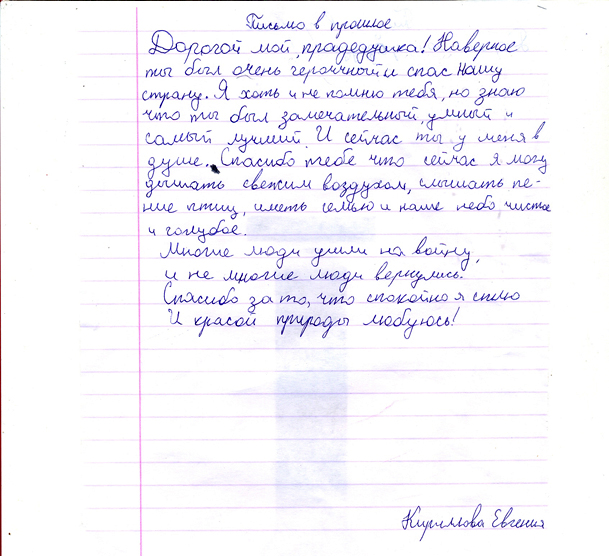 Письмо в прошлое
Дорогой мой, прадедушка! Наверное
ты был очень героичный и спас нашу
страну. Я хоть и не помню тебя, но знаю
что ты был замечательный, умный и
самый лучший. И сейчас ты у меня в
душе. Спасибо тебе что сейчас я могу
дышать свежим воздухом, слышать пе-
ние птиц, иметь семью и наше небо чистое
и голубое.
Многие люди ушли на войну,
и не многие люди вернулись.
Спасибо за то, что спокойно я сплю
И красой природы любуюсь!
Евгения